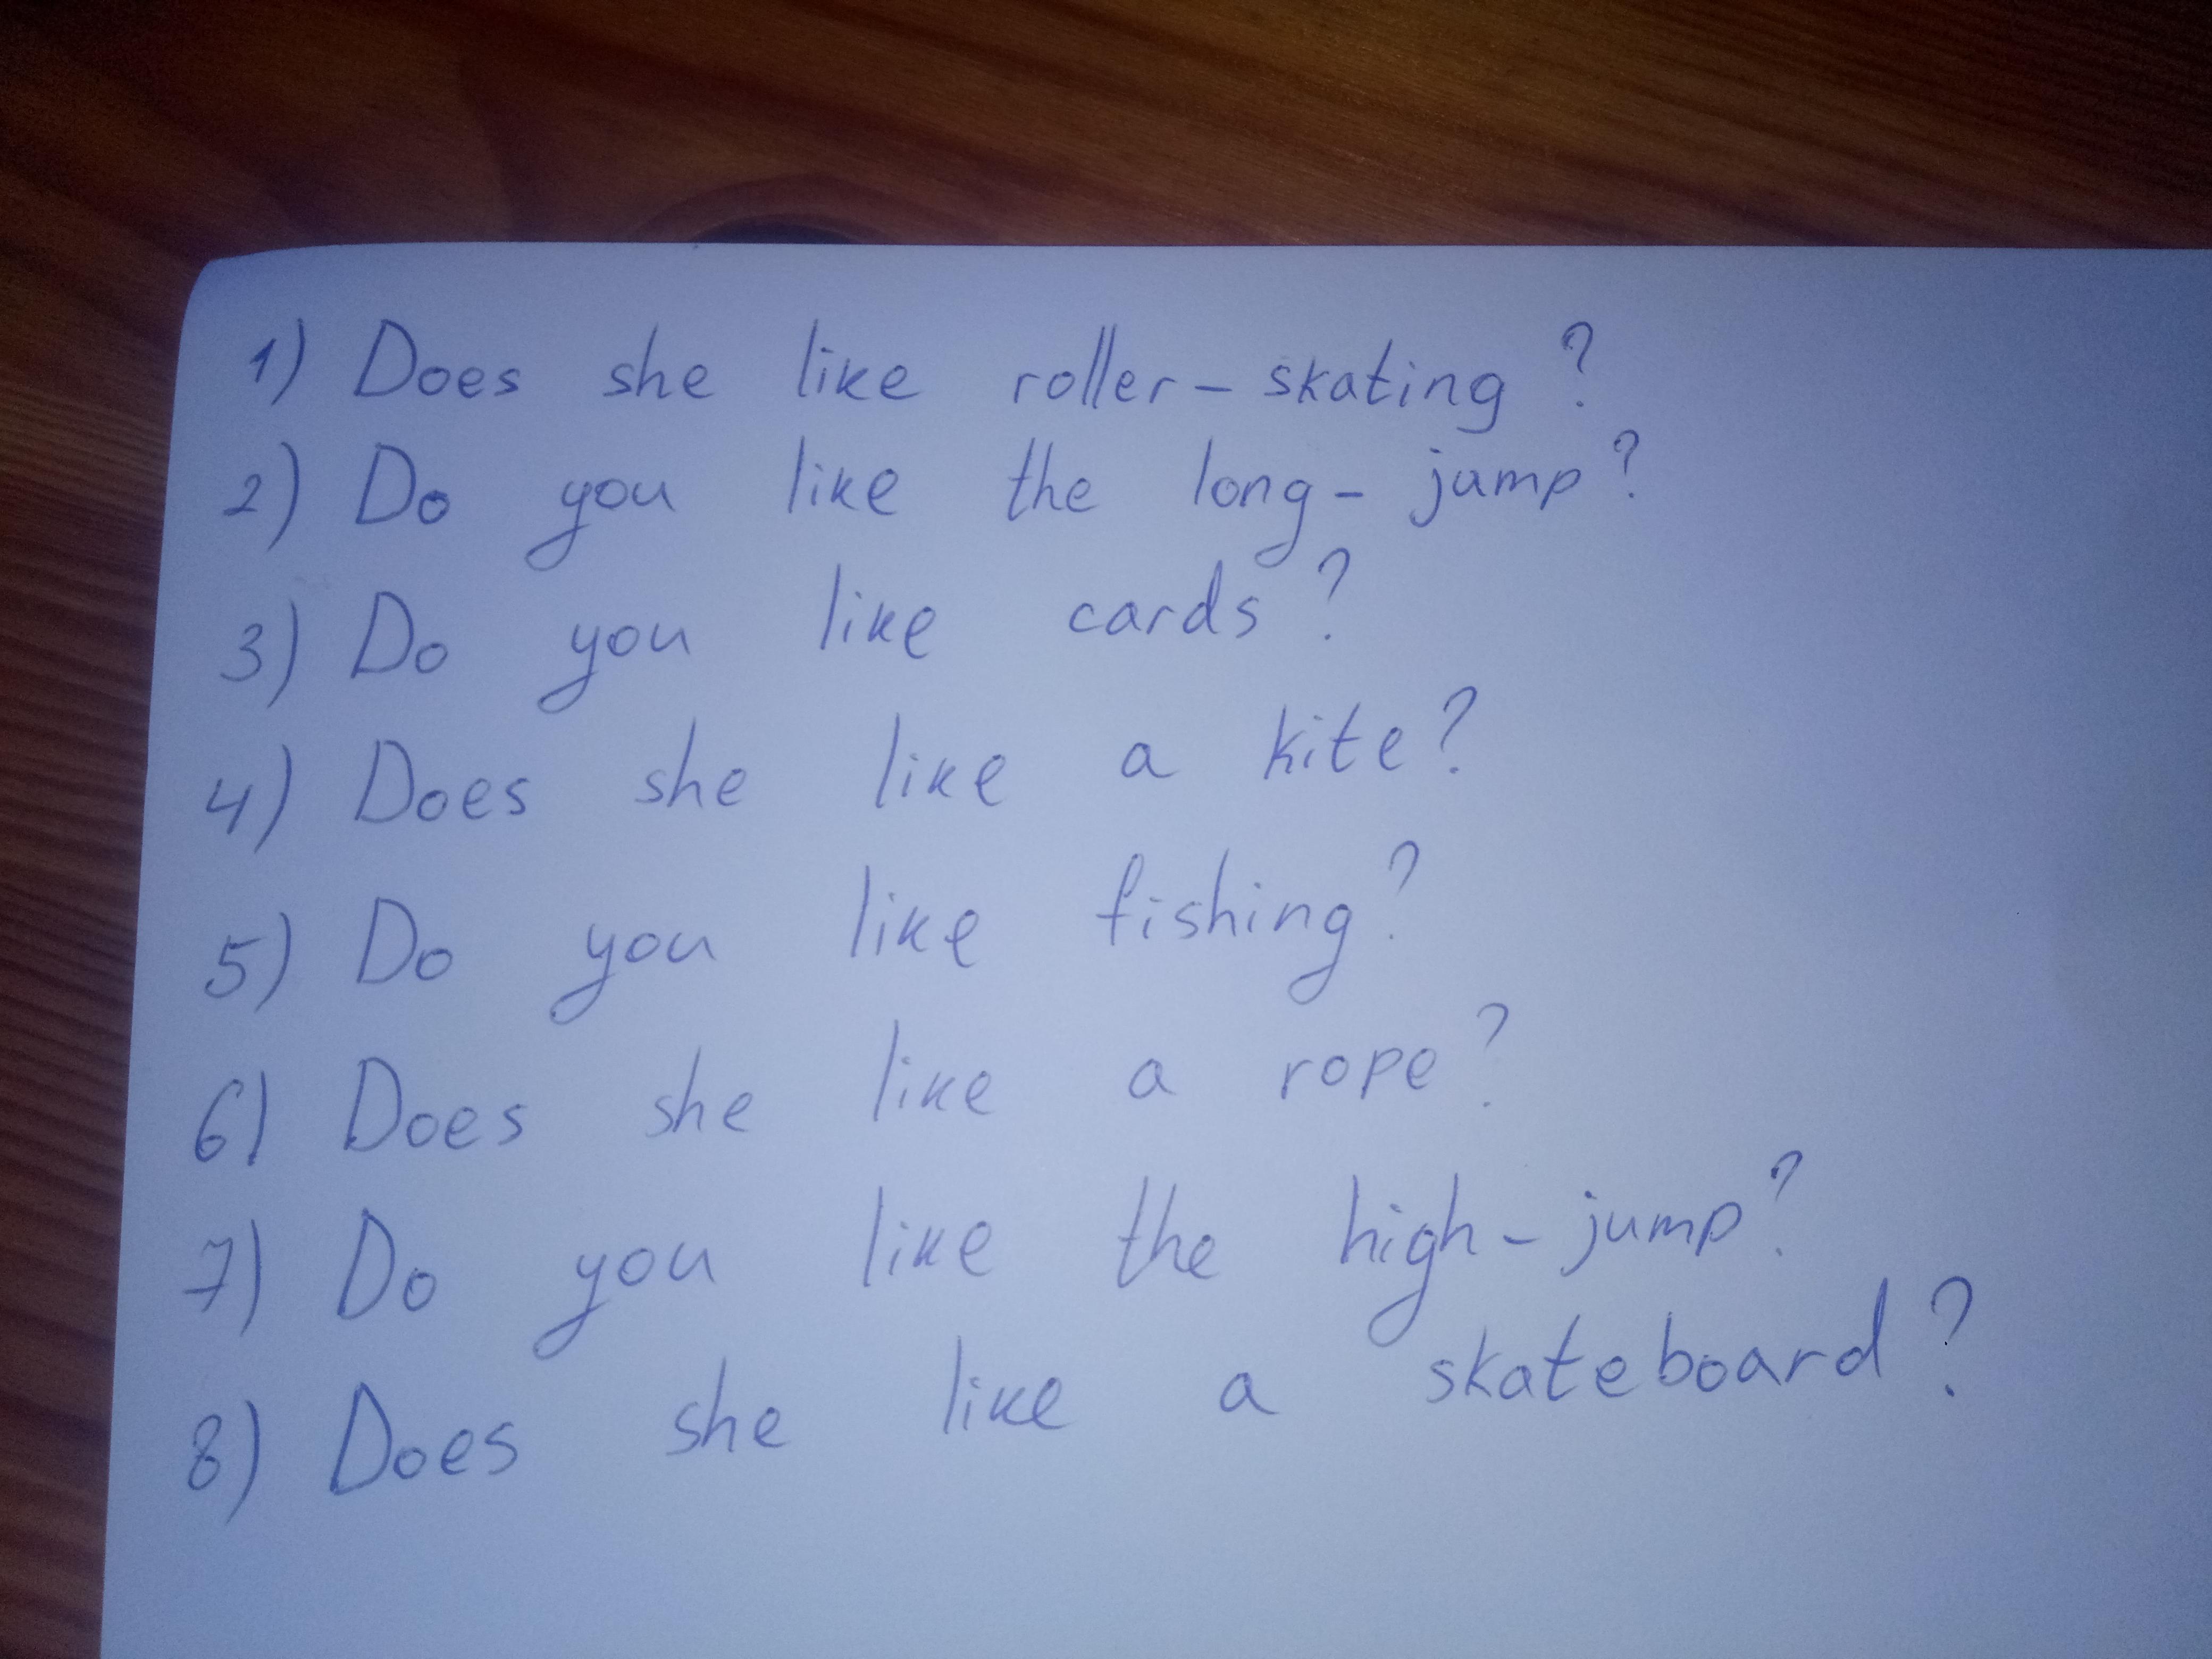 1) Does she like roller-skating?
2) Do you like the long-jump?
3) Do you like cards?
4) Does she like a kite?
5) Do you like fishing?
6) Does she like a rope?
7) Do you like the high-jump?
8) Does she like a skateboard?